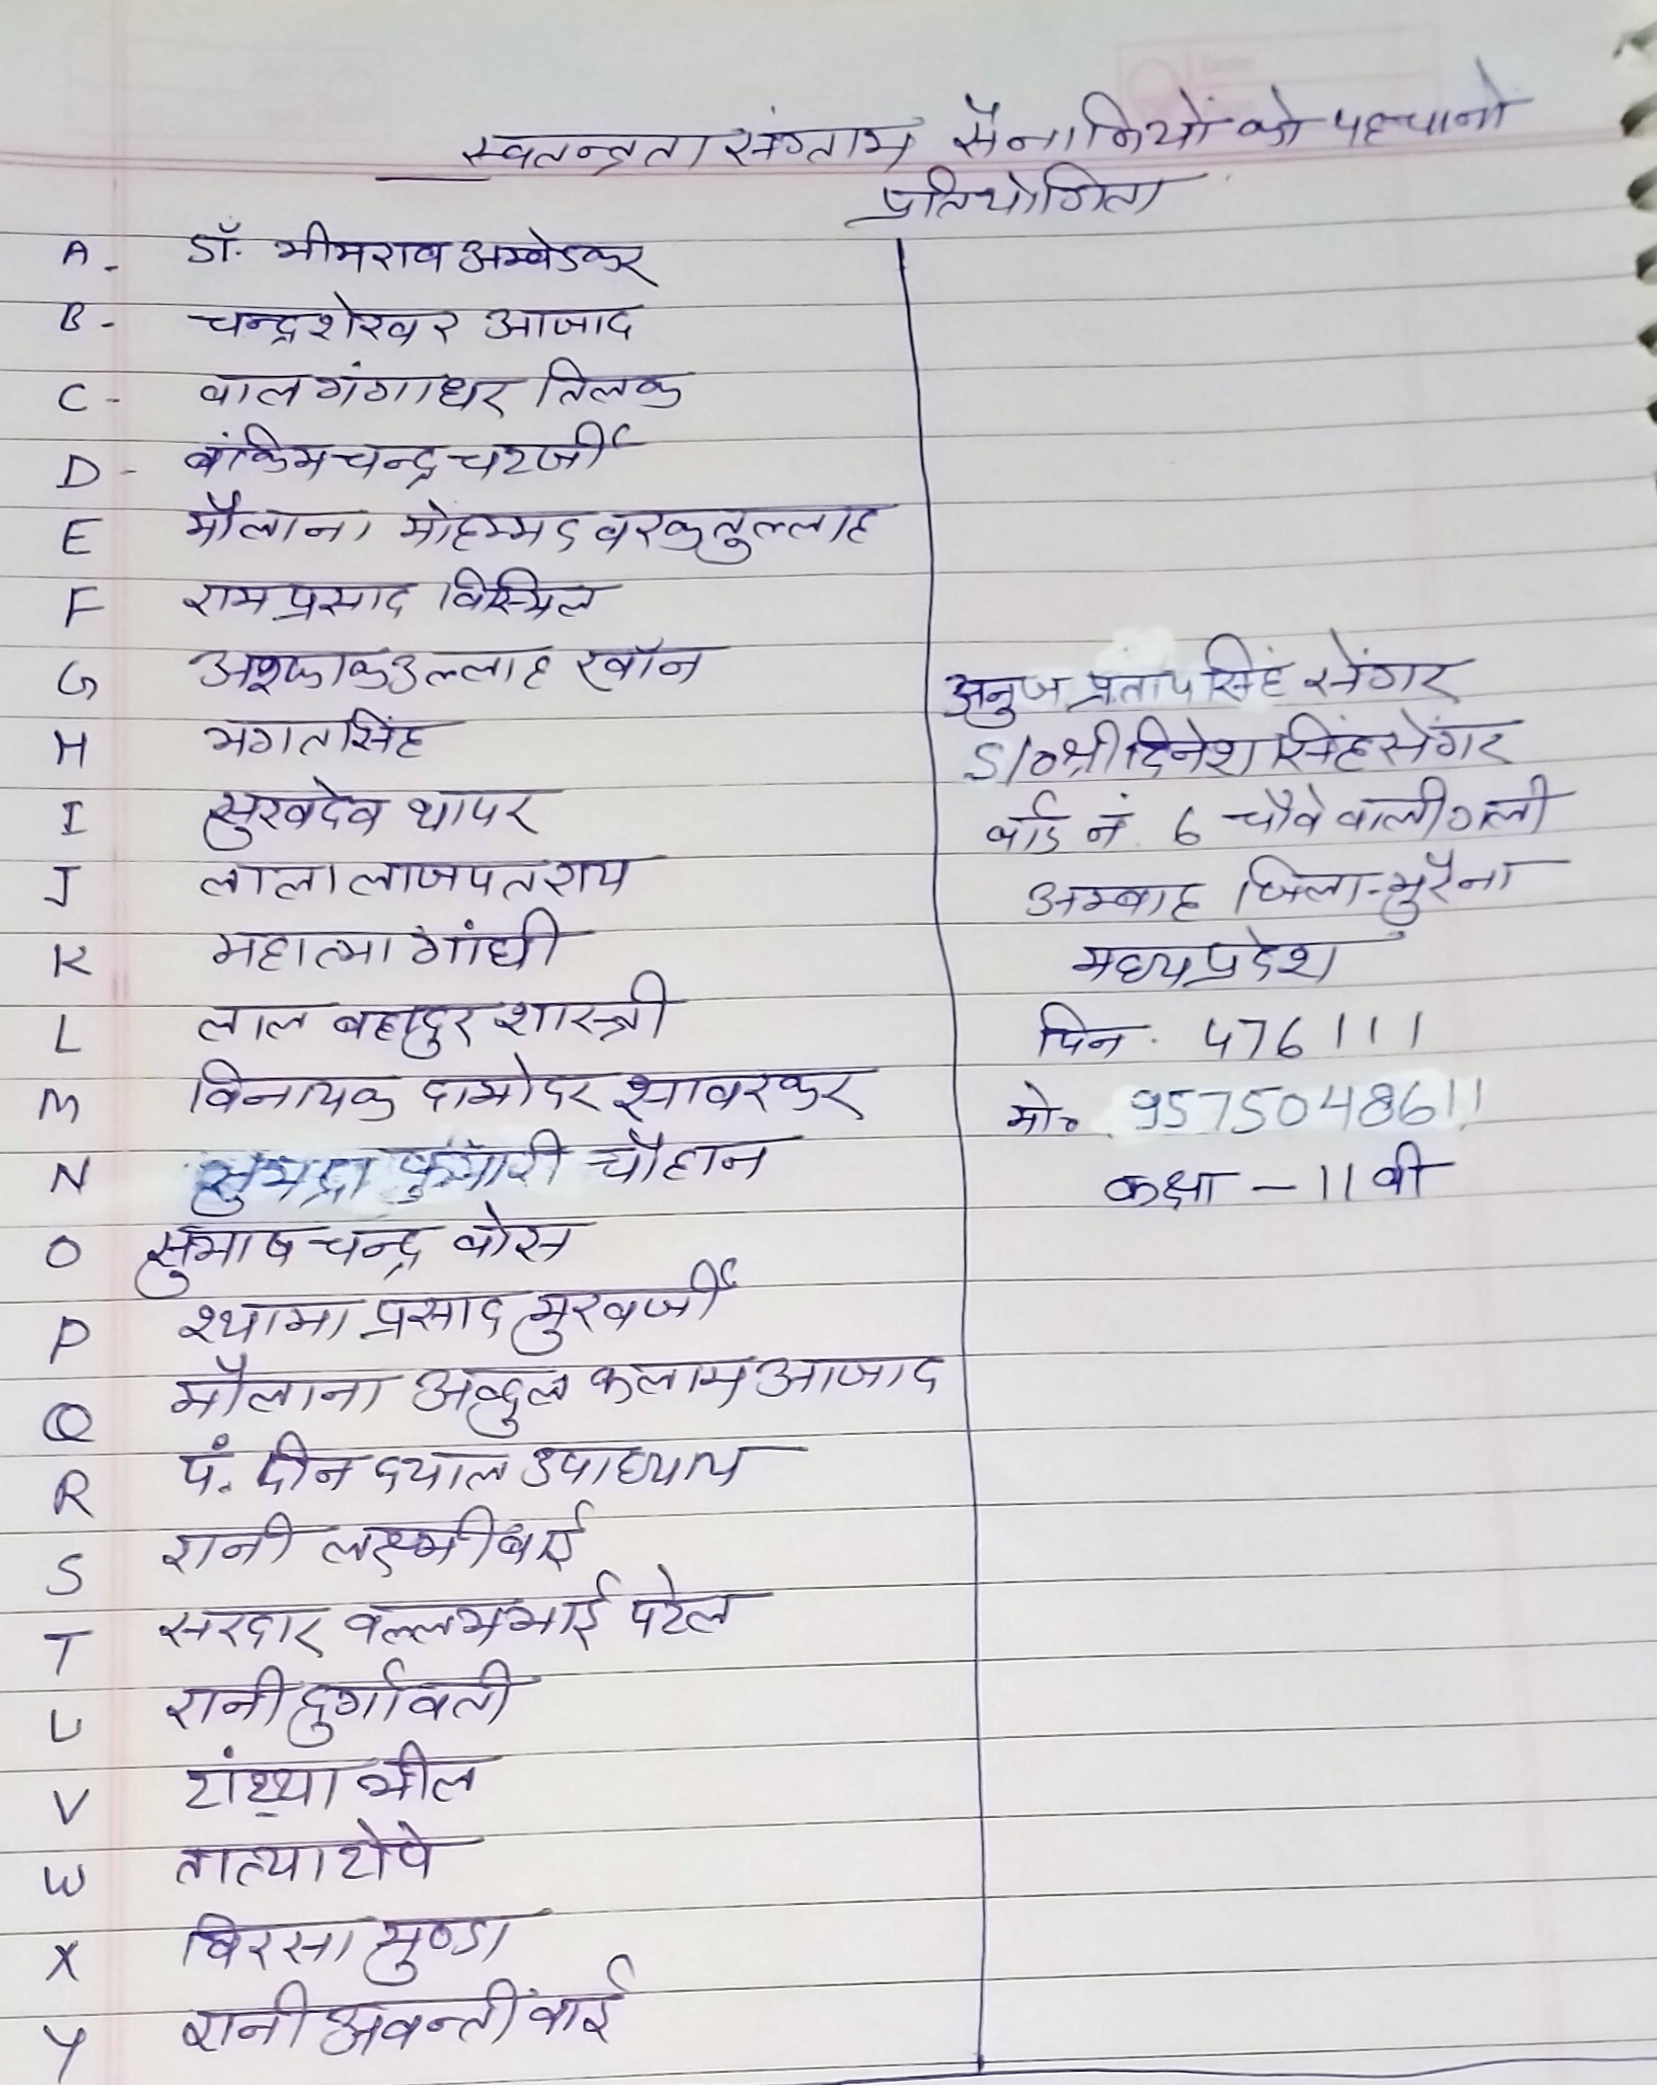 स्वतन्त्रता संग्राम सैनानियों को पहचानो
प्रतियोगिता
A - डॉ. भीमराव अम्बेडकर
B - चन्द्रशेखर आजाद
C - बाल गंगाधर तिलक
D - बांकिम चन्द्र चटर्जी
E मौलाना मोहम्मद बरकतुल्लाह
F रामप्रसाद बिस्मिल
G अश्फाकउल्लाह खॉन
H भगतसिंह
I सुखदेव थापर
J लाला लाजपतराय
K महात्मा गांधी
L लाल बहादुर शास्त्री
M विनायक दामोदर सावरकर
N सुभद्रा कुमारी चौहान
O सुभाष चन्द्र बोस
P श्यामा प्रसाद मुखर्जी
Q मौलाना अब्दुल कलाम आजाद
R पं. दीन दयाल उपाध्याय
S रानी लक्ष्मीबाई
T सरदार वल्लभभाई पटेल
U रानी दुर्गावती
V टांट्या भील
W तात्या टोपे
X बिरसा मुण्डा
Y रानी अवन्ती बाई
अनुज प्रताप सिंह सेंगर
S/o श्री दिनेश सिंह सेंगर
वार्ड नं. 6 चौवे वाली गली
अम्बाह जिला - मुरैना
मध्यप्रदेश
पिन . 476111
मो० 9575048611
कक्षा - 11 वी